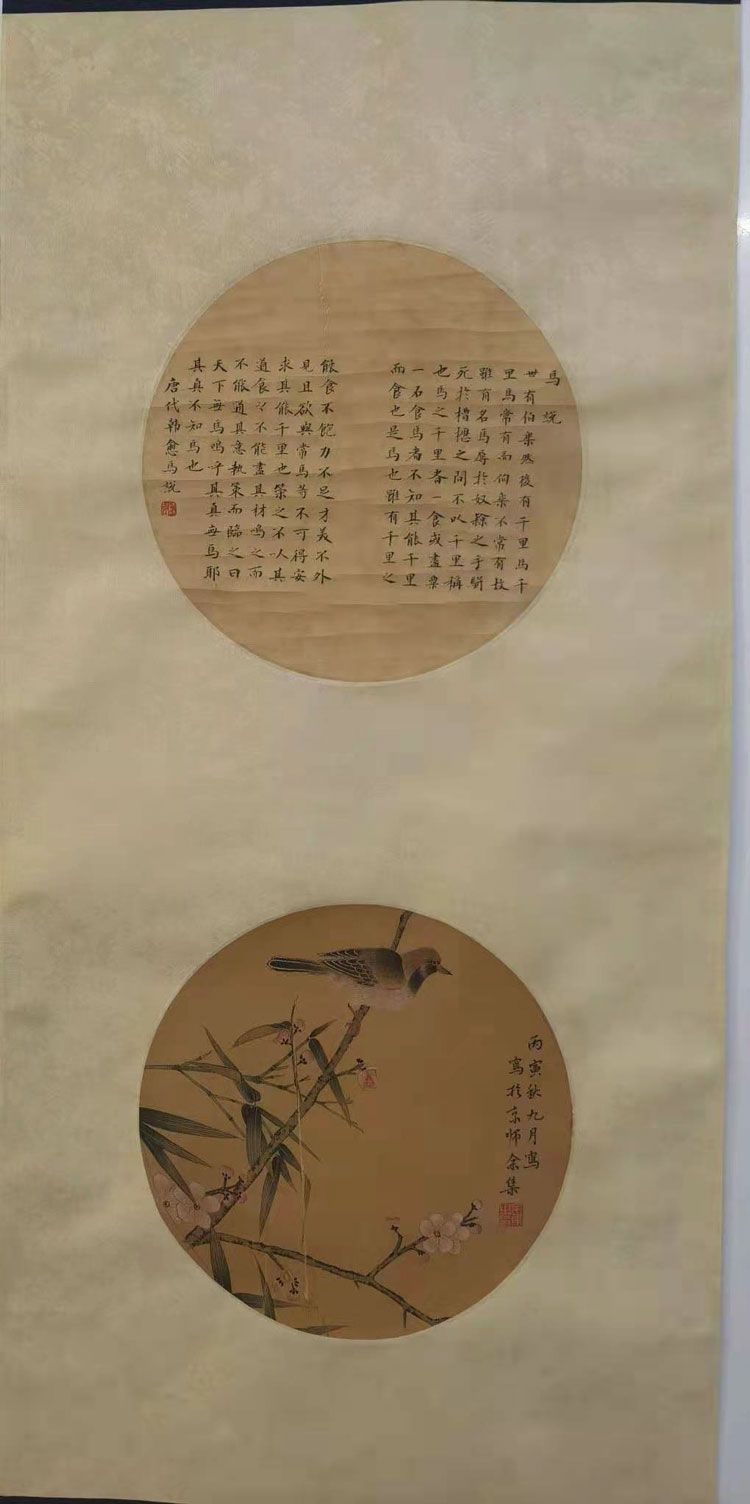 馬說
世有伯樂然後有千里馬千
里馬常有而伯樂不常有故
雖有名馬辱於奴隸之手駢
死於槽櫪之間不以千里稱
也馬之千里者一食或盡粟
一石食馬者不知其能千里
而食也是馬也雖有千里之
能食不飽力不足才美不外
見且欲與常馬等不可得安
求其能千里也策之不人其
道食之不能盡其材鳴之而
不能通其意執策而臨之曰
天下無馬嗚乎其真無馬耶
其真不知馬也
唐代韓愈馬說
丙寅秋九月寫
寫於京師余集